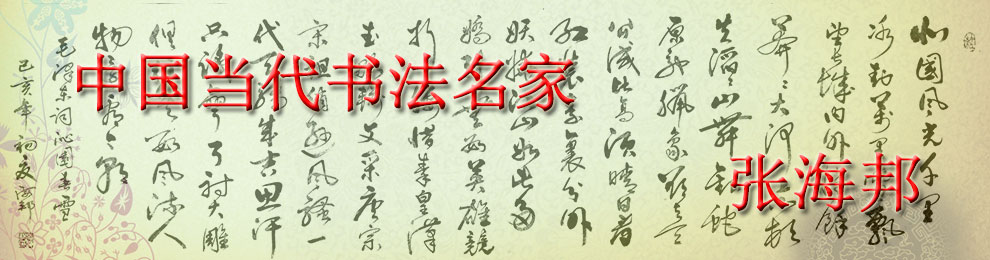 中国当代书法名家
张海邦
北國风光千里
冰封萬里雪飄
望長城内外惟餘
莽々大河上下頓
失滔々山舞銀蛇
原驰腊象欲与天
公试比高须晴日看
红装素裹分外
妖娆江山如此多
娇引无数英雄競
折腰惜秦皇漢
武输文采唐宗
宋祖稍逊风骚一
代天骄成吉思汗
只识弯弓射大雕
俱往矣数风流人
物还看今朝
毛泽东词沁園春雪
己亥年初夏海邦